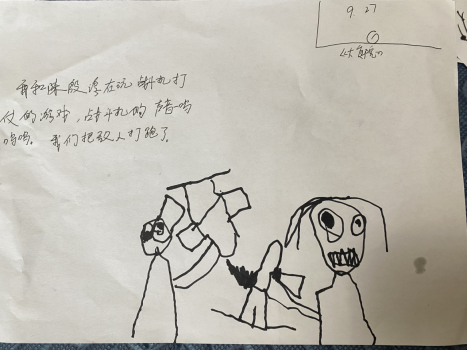 9.27
我和陈段淳在玩战斗机打
仗的游戏,战斗机的声音呜
呜呜。我们把敌人打跑了。